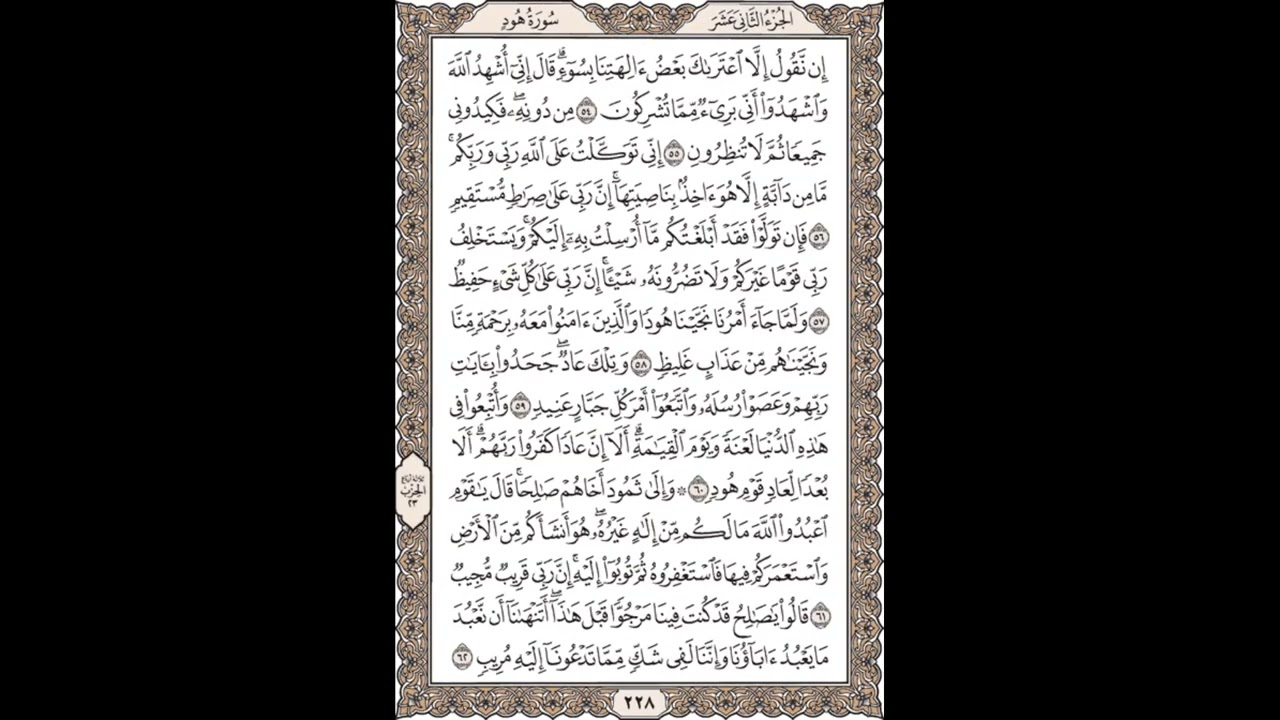 الجُزْءُ الثَّانِي عَشَرَ
سُورَةُ هُودٍ
إِن نَّقُولُ إِلَّا ٱعْتَرَىٰكَ بَعْضُ ءَالِهَتِنَا بِسُوٓءٍۗ قَالَ إِنِّىٓ أُشْهِدُ ٱللَّهَ
وَٱشْهَدُوٓا۟ أَنِّى بَرِىٓءٌ مِّمَّا تُشْرِكُونَ ٥٤ مِن دُونِهِۦۖ فَكِيدُونِى
جَمِيعًا ثُمَّ لَا تُنظِرُونِ ٥٥ إِنِّى تَوَكَّلْتُ عَلَى ٱللَّهِ رَبِّى وَرَبِّكُمۚ
مَّا مِن دَآبَّةٍ إِلَّا هُوَ ءَاخِذٌۢ بِنَاصِيَتِهَآۚ إِنَّ رَبِّى عَلَىٰ صِرَٰطٍ مُّسْتَقِيمٍ
٥٦ فَإِن تَوَلَّوْا۟ فَقَدْ أَبْلَغْتُكُم مَّآ أُرْسِلْتُ بِهِۦٓ إِلَيْكُمْۚ وَيَسْتَخْلِفُ
رَبِّى قَوْمًا غَيْرَكُمْ وَلَا تَضُرُّونَهُۥ شَيْـًٔاۚ إِنَّ رَبِّى عَلَىٰ كُلِّ شَىْءٍ حَفِيظٌ
٥٧ وَلَمَّا جَآءَ أَمْرُنَا نَجَّيْنَا هُودًا وَٱلَّذِينَ ءَامَنُوا۟ مَعَهُۥ بِرَحْمَةٍ مِّنَّا
وَنَجَّيْنَٰهُم مِّنْ عَذَابٍ غَلِيظٍ ٥٨ وَتِلْكَ عَادٌۖ جَحَدُوا۟ بِـَٔايَٰتِ
رَبِّهِمْ وَعَصَوْا۟ رُسُلَهُۥ وَٱتَّبَعُوٓا۟ أَمْرَ كُلِّ جَبَّارٍ عَنِيدٍ ٥٩ وَأُتْبِعُوا۟ فِى
هَٰذِهِ ٱلدُّنْيَا لَعْنَةً وَيَوْمَ ٱلْقِيَٰمَةِۗ أَلَآ إِنَّ عَادًا كَفَرُوا۟ رَبَّهُمْۗ أَلَا
بُعْدًا لِّعَادٍ قَوْمِ هُودٍ ٦٠ ۞ وَإِلَىٰ ثَمُودَ أَخَاهُمْ صَٰلِحًاۚ قَالَ يَٰقَوْمِ
ٱعْبُدُوا۟ ٱللَّهَ مَا لَكُم مِّنْ إِلَٰهٍ غَيْرُهُۥۖ هُوَ أَنشَأَكُم مِّنَ ٱلْأَرْضِ
وَٱسْتَعْمَرَكُمْ فِيهَا فَٱسْتَغْفِرُوهُ ثُمَّ تُوبُوٓا۟ إِلَيْهِۚ إِنَّ رَبِّى قَرِيبٌ مُّجِيبٌ
٦١ قَالُوا۟ يَٰصَٰلِحُ قَدْ كُنتَ فِينَا مَرْجُوًّا قَبْلَ هَٰذَآۖ أَتَنْهَىٰنَآ أَن نَّعْبُدَ
مَا يَعْبُدُ ءَابَآؤُنَا وَإِنَّنَا لَفِى شَكٍّ مِّمَّا تَدْعُونَآ إِلَيْهِ مُرِيبٍ ٦٢
ثلاثة أرباع
الحزب
٢٣
٢٢٨